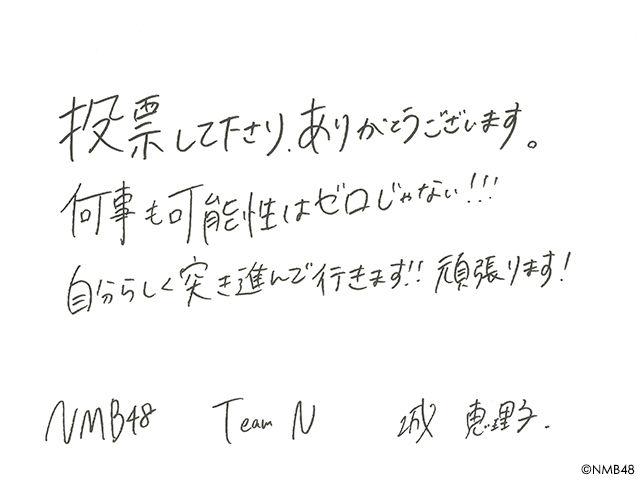 投票して下さり、ありがとうございます。
何事も可能性はゼロじゃない!!!
自分らしく突き進んで行きます!! 頑張ります!
NMB48 Team N 城 恵理子.
©NMB48